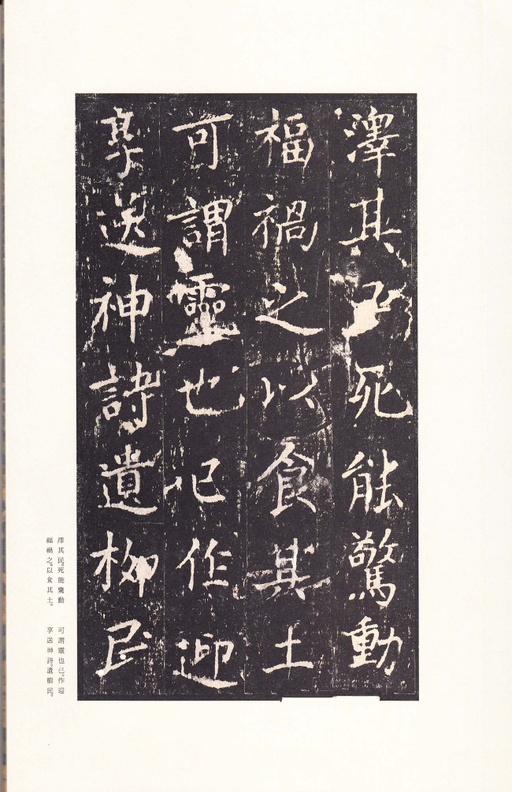 澤其民死能驚動
福禍之以食其土
可謂靈也已作迎
享送神詩遺柳民
澤其民。死能驚動
福禍之。以食其土。
可謂靈也已。作迎
享送神詩。遺柳民。